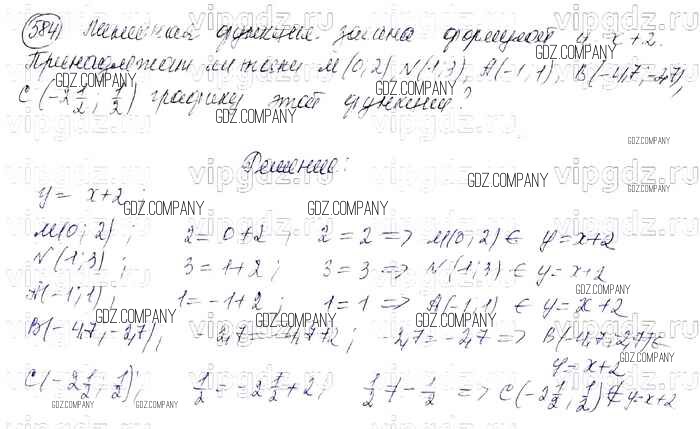 584) Линейная функция задана формулой y = x+2.
Принадлежат ли точки M(0;2), N(1;3), A(-1;1), B(-4,7;-2,7),
C(-2 1/2; 1/2) графику этой функции?
Решение:
y = x+2;
M(0;2); 2=0+2; 2=2 => M(0;2) ∈ y=x+2
N(1;3); 3=1+2; 3=3 => N(1;3) ∈ y=x+2
A(-1;1); 1=-1+2; 1=1 => A(-1;1) ∈ y=x+2
B(-4,7;-2,7); -2,7=-4,7+2; -2,7=-2,7 => B(-4,7;-2,7) ∈
y=x+2
C(-2 1/2; 1/2); 1/2=-2 1/2+2; 1/2≠-1/2 => C(-2 1/2; 1/2) ∉ y=x+2
vipgdz.ru
GDZ.COMPANY